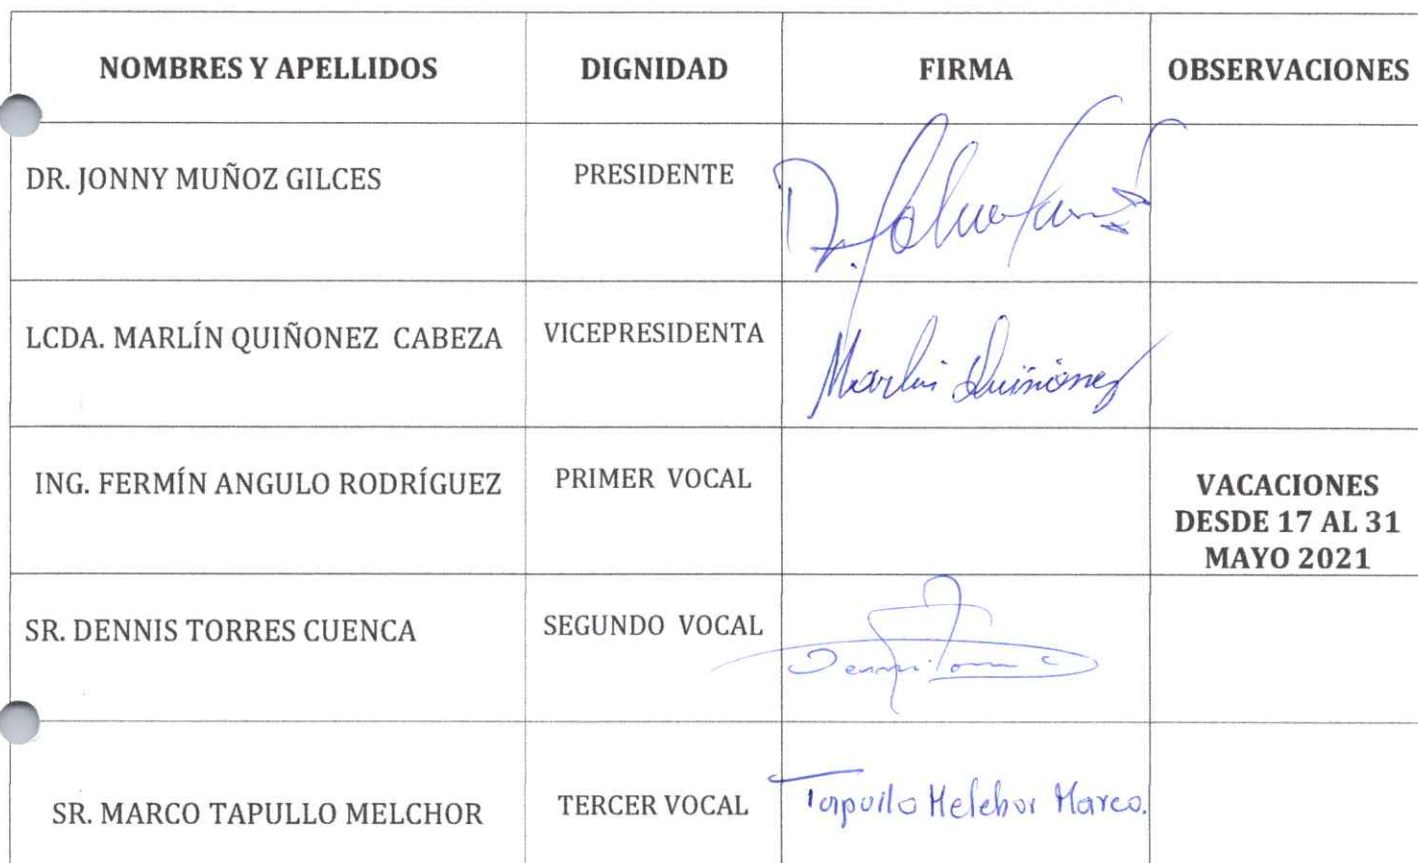 NOMBRES Y APELLIDOS DIGNIDAD FIRMA OBSERVACIONES
DR. JONNY MUÑOZ GILCES PRESIDENTE
LCDA. MARLÍN QUIÑONEZ CABEZA VICEPRESIDENTA Marlin Quiñonez
ING. FERMÍN ANGULO RODRÍGUEZ PRIMER VOCAL VACACIONES
DESDE 17 AL 31
MAYO 2021
SR. DENNIS TORRES CUENCA SEGUNDO VOCAL
SR. MARCO TAPULLO MELCHOR TERCER VOCAL Tapullo Melchor Marco.